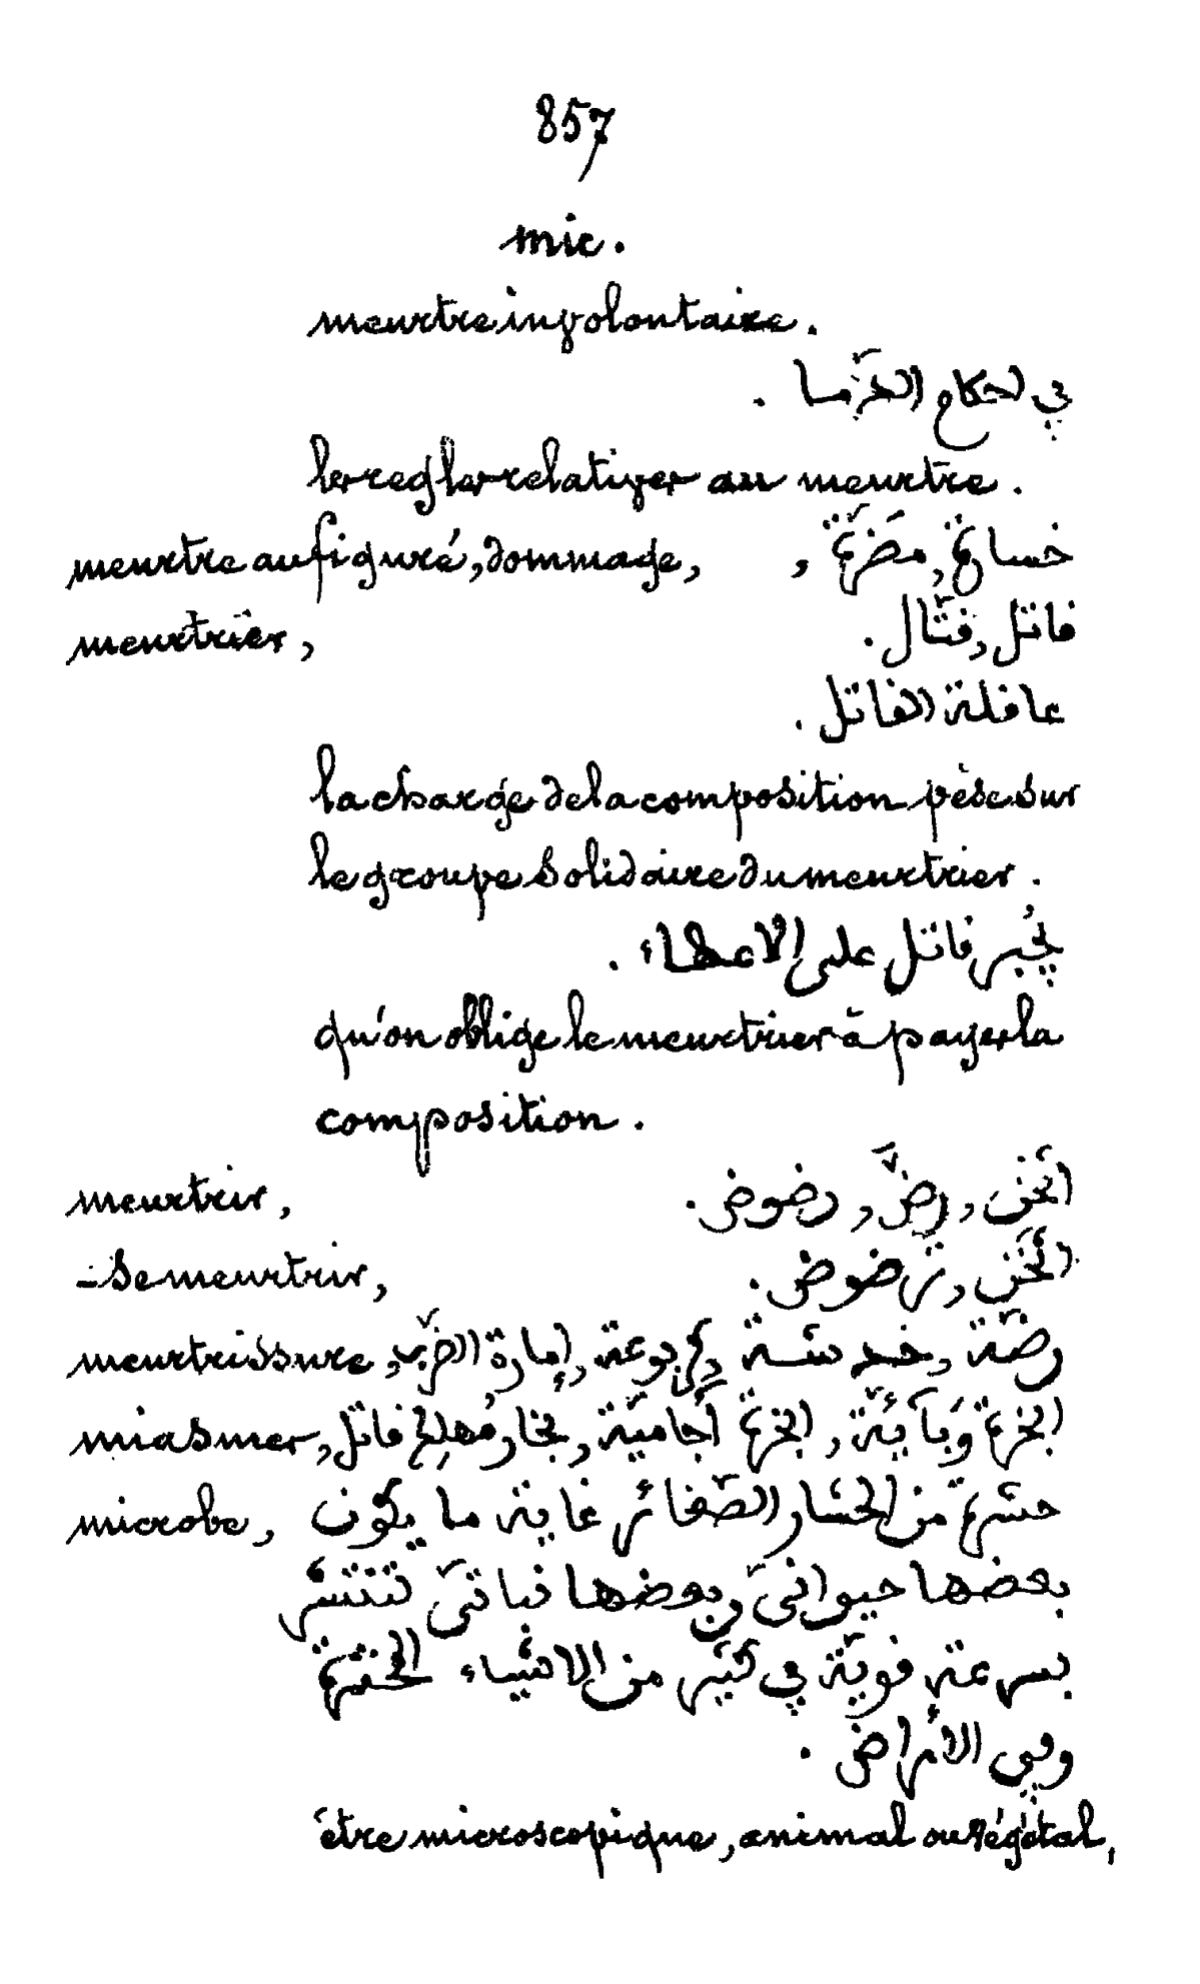 857
mic.
meurtre involontaire.
في احكام الدّما.
les regles relatives au meurtre.
meurtre au figuré, dommage, خسارة, مضرّة,
meurtrier, قاتل, قتّال.
عاقلة القاتل.
la charge de la composition pèse sur
le groupe solidaire du meurtrier.
يجبر قاتل على الاعطاء.
qu'on oblige le meurtrier à payer la
composition.
meurtrir, اثخن, رضّ, رضوض.
- se meurtrir, اثخن, ترضوض.
meurtrissure, رضّة, خدشة, إمارة الضّرب
miasmes, ابخرة وبآئيّة, ابخرة آجاميّة, بخار مهلك قاتل
microbe, حشرة من الحشار الصّغائر غاية ما يكون
بعضها حيوانيّ وبعضها نباتيّ تنتشر
بسرعة قويّة في كثير من الاشياء الخنزة
وفي الأمراض.
être microscopique, animal ou végétal,